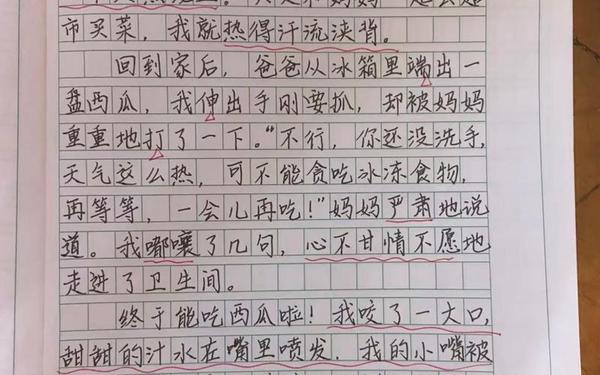 市买菜，我就热得汗流浃背。
回到家后，爸爸从冰箱里端出一
盘西瓜，我伸出手刚要抓，却被妈妈
重重地打了一下。“不行，你还没洗手，
天气这么热，可不能贪吃冰冻食物，
再等等，一会儿再吃！”妈妈严肃地说
道。我嘟囔了几句，心不甘情不愿地
走进了卫生间。
终于能吃西瓜啦！我咬了一大口，
甜甜的汁水在嘴里喷发，我的小嘴被